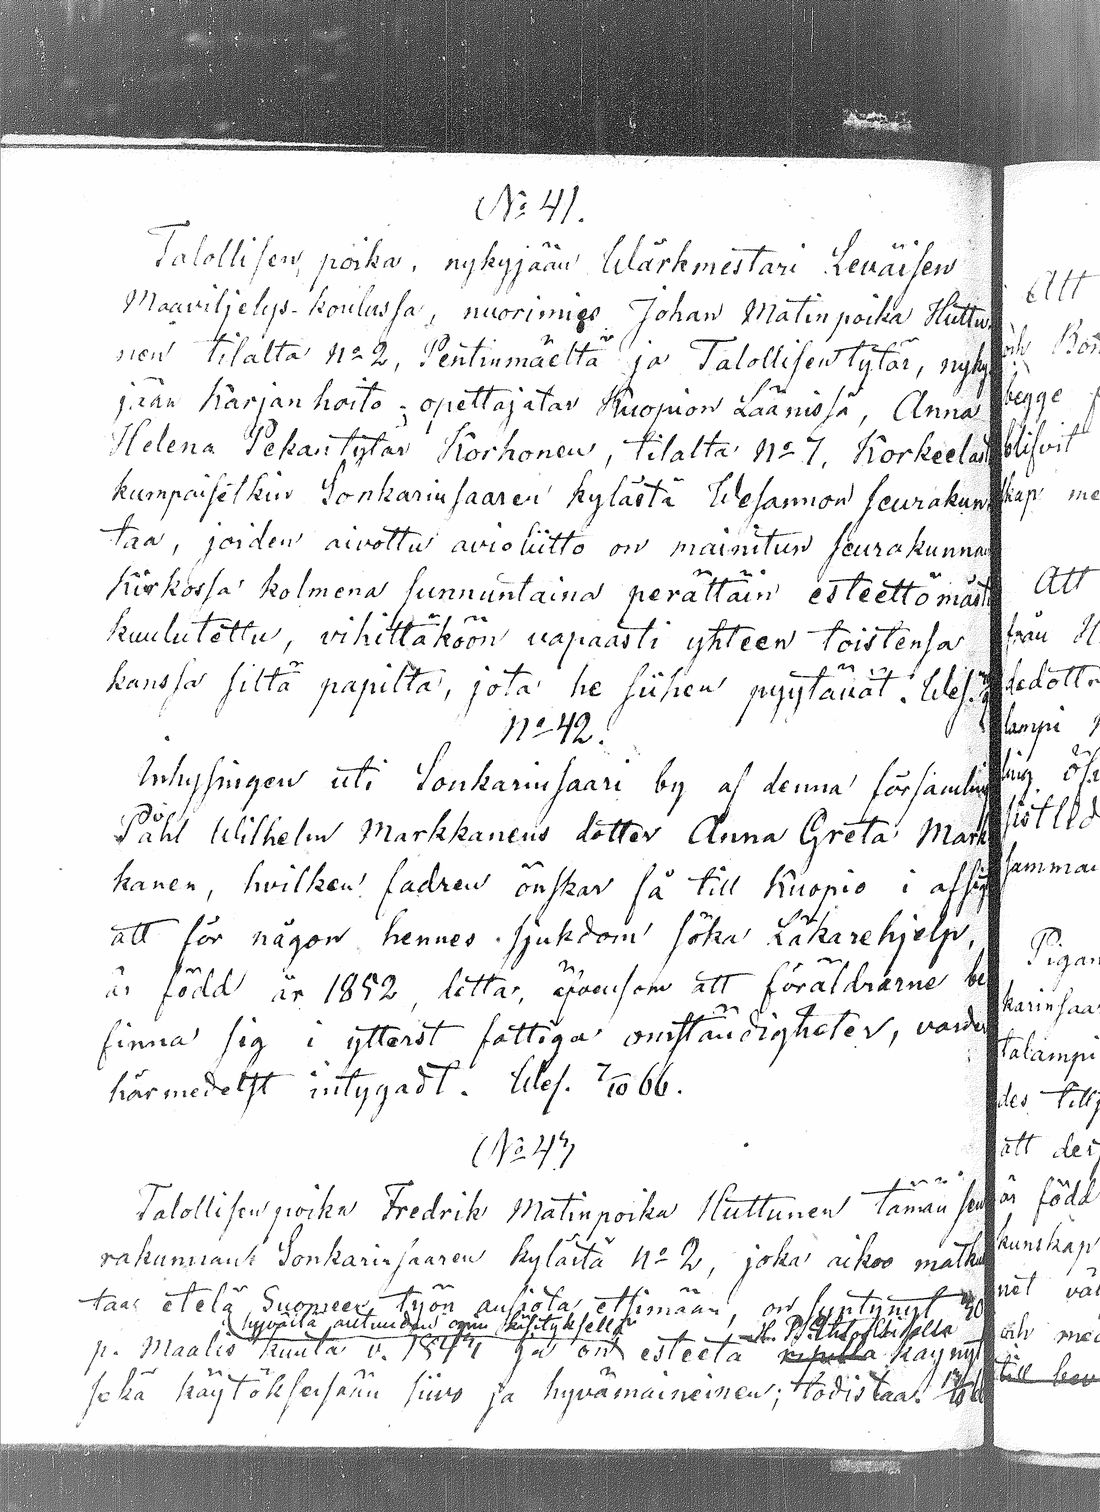 No 41.
Talollisen poika, nykyjään Wärkmestari Leväisen
Maaviljelys-koulussa, nuorimies Johan Matinpoika Huttu
nen tilalta No 2, Pentinmäeltä ja Talollisentytär, nyky
jään Karjanhoito-opettajatar Kuopion Läänissä, Anna
Helena Pekantytär Korhonen, tilalta No 7, Korkeelast
kumpaisetkin Sonkarinsaaren kylästä Wesannon seurakun
taa, joiden aivottu avioliitto on mainitun seurakunnan
Kirkossa kolmena sunnuntaina perättäin esteettömäst
kuulutettu, vihittäköön vapaasti yhteen toistensa
kanssa siltä papilta, jota he siihen pyytävät. Wes.
No 42.
Inhysingen uti Sonkarinsaari by af denna församling
Påhl Wilhelm Markkanens dotter Anna Greta Mark
kanen, hvilken fadren önskar få till Kuopio i afsigt
att för någon hennes sjukdom söka Läkarehjelp,
är född år 1852, detta, äfvensom att föräldrarne be
finna sig i ytterst fattiga omständigheter, varder
härmedelst intygadt. Wes. 7/10 66.
No 43
Talollisenpoika Fredrik Matinpoika Huttunen tämän seu
rakunnan Sonkarinsaaren kylästä No 2, joka aikoo matkus
taa etelä Suomeen työn ansiota etsimään, on syntynyt 30
hyvällä autuuden opin käsityksellä H. P. Ehtoollisella
p. Maalis kuuta v. 1843 ja on esteetä ripillä käynyt
sekä käytöksessään siivo ja hyvämaineinen; todistaa.
Att
och
begge
blifvit
skap me
Att
från H
dedott
lampi
ling öf
sistled
samman
Pigan
karinsaa
talampi
des till
att des
är född
kunskap
net vä
och med
till bev